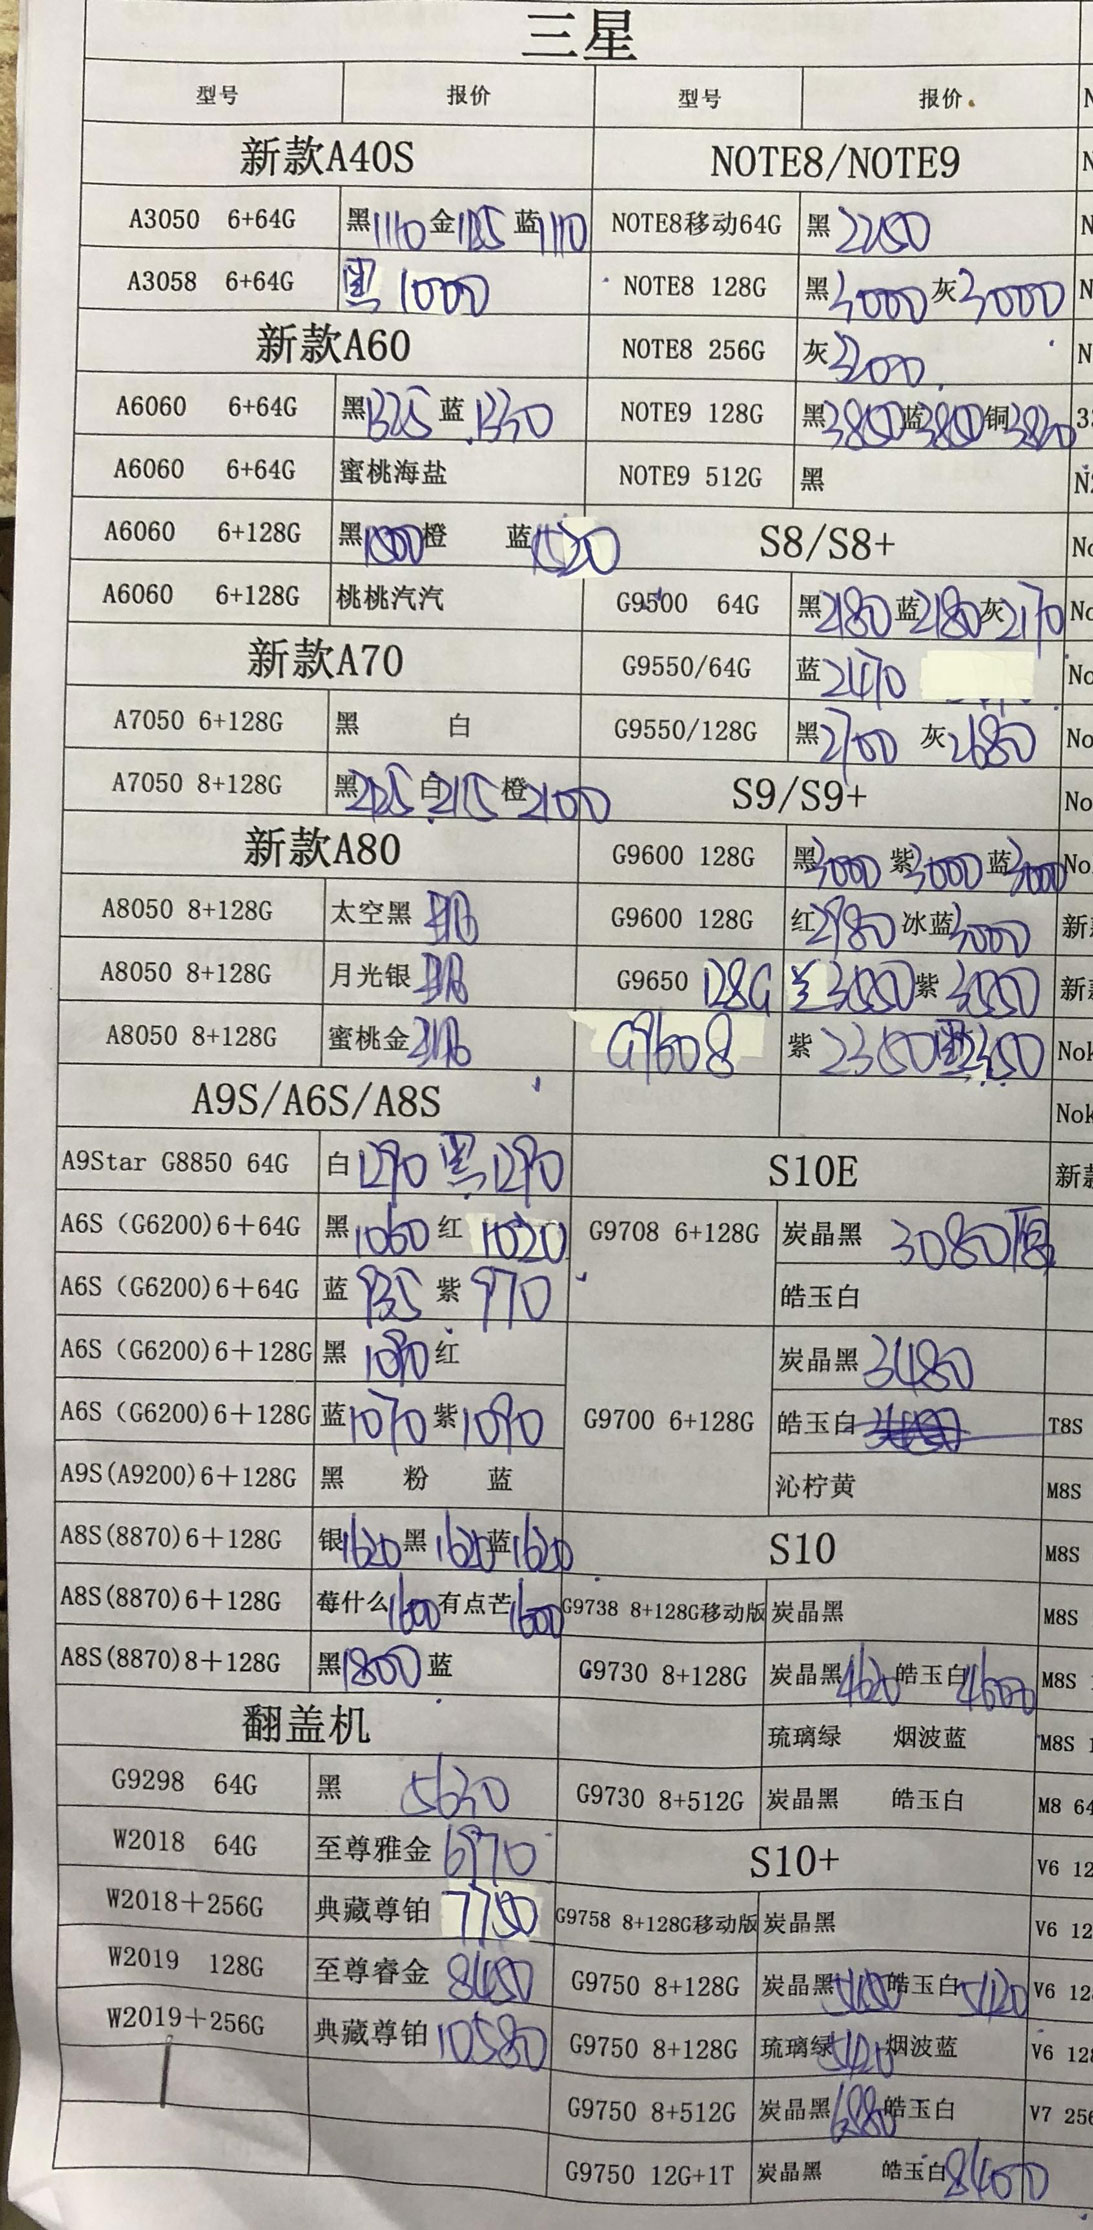 三星
型号 报价 型号 报价
新款A40S NOTE8/NOTE9
A3050 6+64G 黑1110 金1125 蓝1110 NOTE8移动64G 黑2250
A3058 6+64G 黑 1000 NOTE8 128G 黑3000 灰3000
新款A60 NOTE8 256G 灰3200
A6060 6+64G 黑1325 蓝1330 NOTE9 128G 黑3850 蓝3850 铜3820
A6060 6+64G 蜜桃海盐 NOTE9 512G 黑
A6060 6+128G 黑1500 橙 蓝1520 S8/S8+
A6060 6+128G 桃桃汽汽 G9500 64G 黑2180 蓝2180 灰2170
新款A70 G9550/64G 蓝2470
A7050 6+128G 黑 白 G9550/128G 黑2700 灰2680
A7050 8+128G 黑 白 橙2100 S9/S9+
新款A80 G9600 128G 黑3000 紫3000 蓝3000
A8050 8+128G 太空黑 G9600 128G 红2980 冰蓝3000
A8050 8+128G 月光银 G9650 128G 兰3550 紫3550
A8050 8+128G 蜜桃金 G9608 紫2350 黑2350
A9S/A6S/A8S
A9Star G8850 64G 白1290 黑1290 S10E
A6S（G6200)6+64G 黑1060 红1020 G9708 6+128G 炭晶黑 3080
A6S（G6200)6+64G 蓝935 紫970 皓玉白
A6S（G6200)6+128G 黑1090 红 炭晶黑3480
A6S（G6200)6+128G 蓝1070 紫1090 G9700 6+128G 皓玉白
A9S(A9200)6+128G 黑 粉 蓝 沁柠黄
A8S(8870)6+128G 银1620 黑1620 蓝1620 S10
A8S(8870)6+128G 莓什么1600 有点芒1600 G9738 8+128G移动版 炭晶黑
A8S(8870)8+128G 黑1800 蓝 G9730 8+128G 炭晶黑4620 皓玉白4600
翻盖机 琉璃绿 烟波蓝
G9298 64G 黑 5630 G9730 8+512G 炭晶黑 皓玉白
W2018 64G 至尊雅金 6970 S10+
W2018+256G 典藏尊铂 7750 G9758 8+128G移动版 炭晶黑
W2019 128G 至尊睿金 8450 G9750 8+128G 炭晶黑5450 皓玉白5420
W2019+256G 典藏尊铂 10580 G9750 8+128G 琉璃绿5420 烟波蓝
G9750 8+512G 炭晶黑6880 皓玉白
G9750 12G+1T 炭晶黑 皓玉白8400
T8S
M8S
M8S
M8S
M8S
M8S
M8 64
V6 12
V6 12
V6 128
V6 128
V7 256